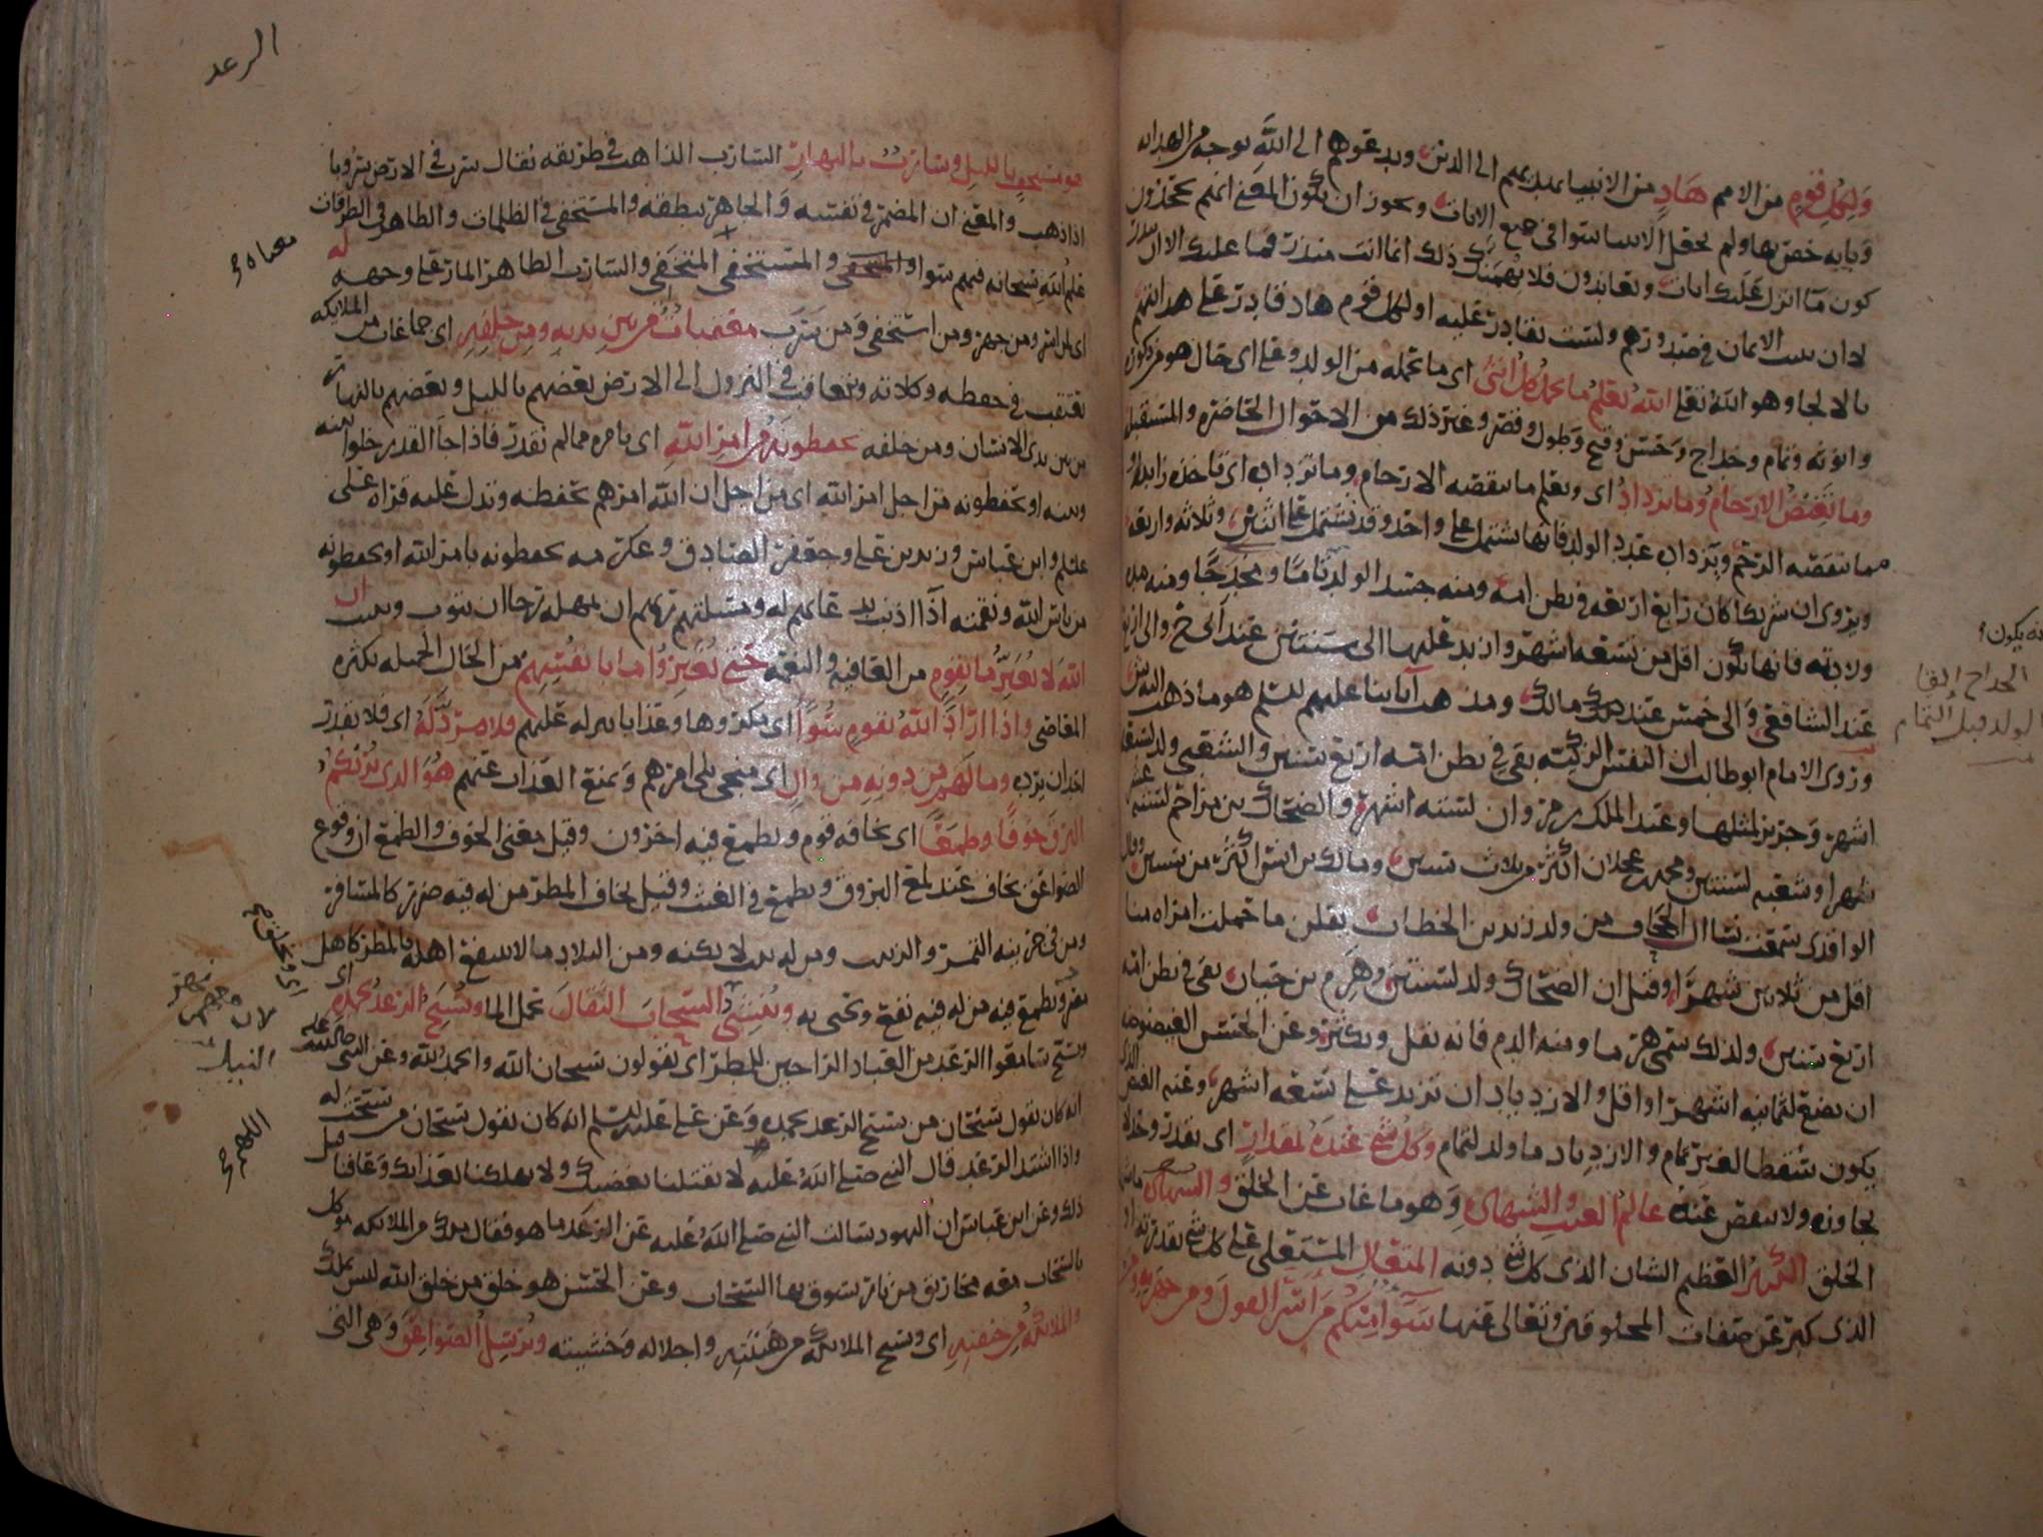 ولكل قوم من الامم هاد من الانبيا يهديهم الى الدين ويدعوهم الى الله بوجه من الهدايه
وبايه خص بها ولم يجعل الانبيا سوا في جميع الايات ويجوز ان يكون المعنى انهم يجحدون
كون ما انزل عليك ايات ويعاندون فلا يهمنك ذلك انما انت منذر فما عليك الا ان تنذر
لا ان تثبت الايمان في صدورهم ولست بقادر عليه اولكل قوم هاد قادر على هدايتهم
بالالجا وهو الله تعلى الله يعلم ما تحمل كل انثى اي ما تحمله من الولد وعلى اي حال هو من ذكوره
وانوثه وتمام وخداج وحسن وقبح وطول وقصر وغير ذلك من الاحوال الحاضره والمستقبله
وما تغيض الارحام وما تزداد اي ويعلم ما تنقصه الارحام وما تزداد اي تاخذه زايدا
مما تنقصه الرحم ويزداد عدد الولد فانها تشتمل على واحد وقد تشتمل على اثنين وثلاثه واربعه
ويروى ان شريكا كان رابع اربعه في بطن امه ومنه جسد الولد تاما ومخدجا ومنه مده
ولادته فانها تكون اقل من تسعه اشهر وازيد عليها الى سنتين عند ابي ح والى اربع
عند الشافعي والى خمس عند مالك ومذهب آبائنا عليهم لسلم هو ما ذهب اليه ش
وروى الامام ابو طالب ان النفس الزكيه بقي في بطن امه اربع سنين والشعبي ولد لسته
اشهر وجرير لمثلها وعبد الملك بن مروان لسته اشهر والضحاك بن مزاحم لسته عشر
شهرا وشعبه لسنتين ومحمد بن عجلان اكثر من ثلاث سنين ومالك بن انس اكثر من سنتين وقال
الواقدي سمعت نسا ال الجحاف من ولد زيد بن الخطاب يقلن ما حملت امراه منا
اقل من ثلاثين شهرا وقيل ان الضحاك ولد لسنتين وهرم بن حيان بقي في بطن امه
اربع سنين ولذلك سمي هرما ومنه الدم فانه يقل ويكثر وعن الحسن الغيضوضه
ان تضع لثمانيه اشهر او اقل والازدياد ان تزيد على تسعه اشهر وعنه الغيض الذي
يكون سقطا لغير تمام والازدياد ما ولد لتمام وكل شي عنده بمقدار اي بقدر وحد لا
يجاوزه ولا ينقص عنه عالم الغيب والشهاده وهو ما غاب عن الخلق والشهاده ما شاهده
الخلق الكبير العظيم الشان الذي كل شي دونه المتعال المستعلي على كل شي بقدرته او
الذي كبر عن صفات المخلوقين وتعالى عنها سوا منكم من اسر القول ومن جهر به ومن
يه يكون
الخداج القا
لولد قبل التمام
الرعد
هو مستخف بالليل وسارب بالنهار السارب الذاهب في طريقه يقال سرب في الارض سروبا
اذا ذهب والمعنى ان المضمر في نفسه والجاهر بنطقه والمستخفي في الظلمات والظاهر في الطرقات
علم الله سبحانه فيهم سوا والمستخفي المتخفي والسارب الظاهر المار على وجهه له
اي لمن اسر ومن جهر ومن استخفى ومن سرب معقبات من بين يديه ومن خلفه اي جماعات من الملايكه
تعتقب في حفظه وكلاته وتتعاقب في النزول الى الارض بعضهم بالليل وبعضهم بالنهار
من بين يدي الانسان ومن خلفه يحفظونه من امر الله اي بامره مما لم يقدر فاذا جا القدر خلوا بينه
وبينه او يحفظونه من اجل امر الله اي من اجل ان الله امرهم بحفظه ويدل عليه قراه علي
عليلم وابن عباس وزيد بن علي وجعفر الصادق وعكرمه يحفظونه بامر الله او يحفظونه
من باس الله ونقمته اذا اذنب بدعائهم له ومسلتهم ربهم ان يمهله رجا ان يتوب وينيب ان
الله لا يغير ما بقوم من العافيه والنعمه حتى يغيروا ما بانفسهم من الحال الجميله بكثره
المعاصي واذا اراد الله بقوم سوا اي مكروها وعذابا ينزله عليهم فلا مرد له اي فلا يقدر
احد ان يرده وما لهم من دونه من وال اي من يلي امرهم ويمنع العذاب عنهم هو الذي يريكم
البرق خوفا وطمعا اي يخافه قوم ويطمع فيه اخرون وقيل معنى الخوف والطمع ان وقوع
الصواعق يخاف عند لمع البروق ويطمع في الغيث وقيل يخاف المطر من له فيه ضرر كالمسافر
ومن في جرينه التمر والزبيب ومن له بيت لا يكنه ومن البلاد ما لا ينتفع اهله بالمطر كاهل
مصر ويطمع فيه من له فيه نفع ويحيى به وينشي السحاب الثقال تحمل الما ويسبح الرعد بحمده اي
ويسبح سامعوا الرعد من العباد الراجين للمطر اي يقولون سبحان الله والحمد لله وعن النبي صلى الله عليه
انه كان يقول سبحان من يسبح الرعد بحمده وعن علي عليه لسلم انه كان يقول سبحان من سبحت له
واذا اشتد الرعد قال النبي صلى الله عليه لا تقتلنا بغضبك ولا تهلكنا بعذابك وعافنا قبل
ذلك وعن ابن عباس ان اليهود سالت النبي صلى الله عليه عن الرعد ما هو فقال ملك من الملايكه موكل
بالسحاب معه مخاريق من نار يسوق بها السحاب وعن الحسن هو خلق من خلق الله ليس بملك
والملايكه من خيفته اي ويسبح الملايكه من هيبته واجلاله وخشيته ويرسل الصواعق وهي التي
معناه
النبيل
اللهم